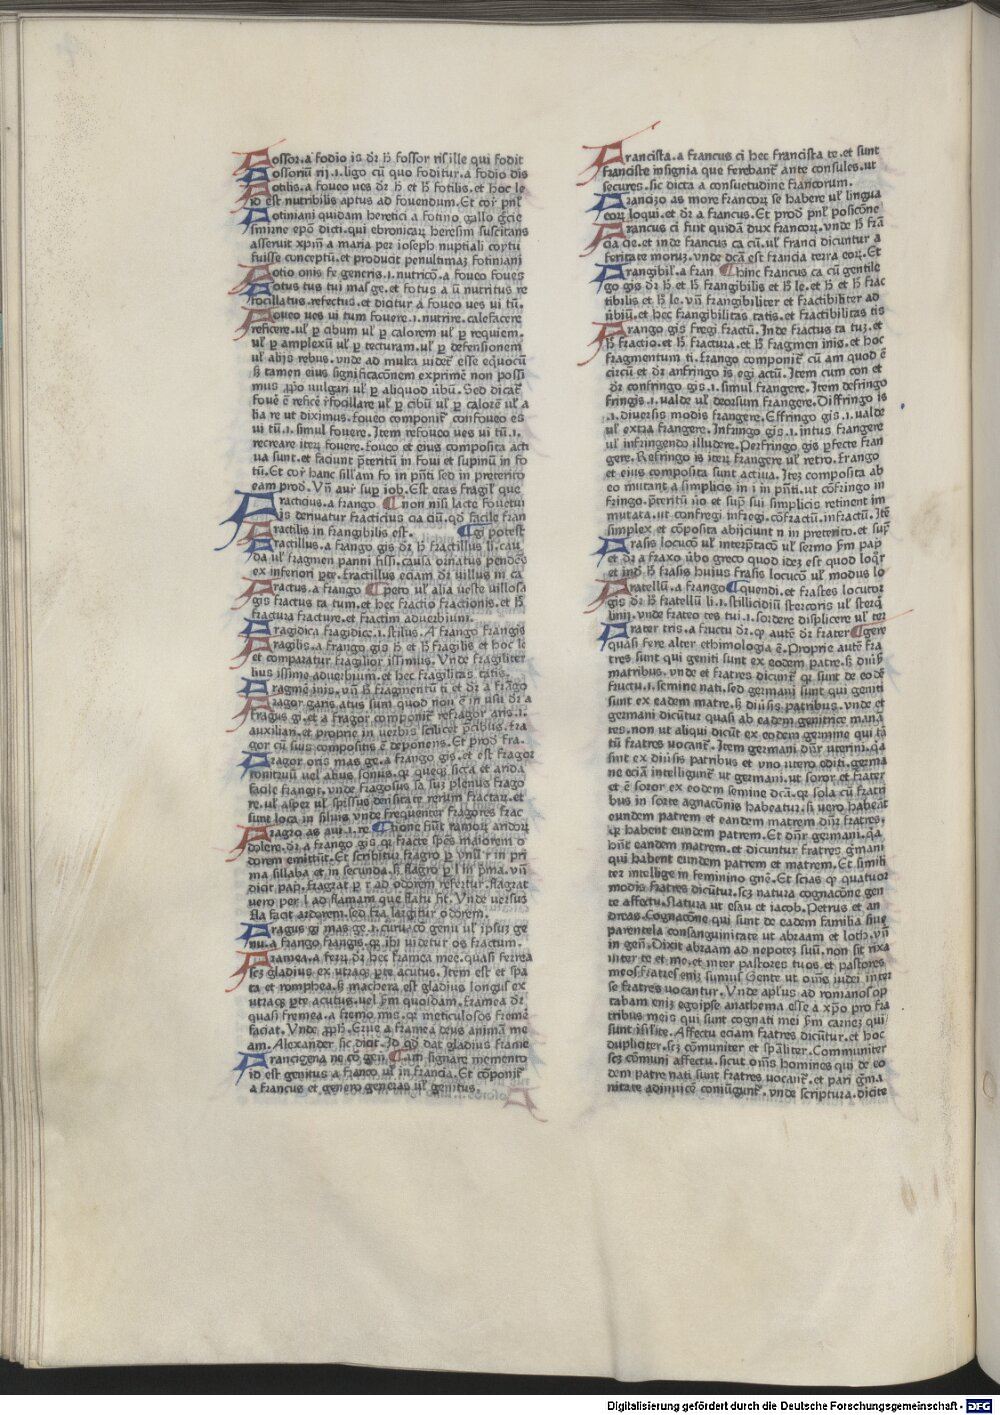 Fossor.a fodio is dr̄ h̄ fossor ris ille qui fodit
Fossoriū rij.i.ligo cū quo foditur.a fodio dis
Fotilis.a foueo ues dr̄ h̄ et h̄ fotilis.et hoc le
id est nutribilis aptus ad fouendum.Et cor̄ pn̄l
Fotiniani quidam heretici a fotino gallo grecie
smirne ep̄o dicti.qui ebronicaꝝ heresim suscitans
asseruit xp̄m a maria per ioseph nuptiali coytu
fuisse conceptū.et producit penultimaꝫ fotiniani
Fotio onis fe generis.i.nutricō.a foueo foues
Fotus tus tui mas ge.et fotus a ū nutritus re
focillatus.refectus.et dicitur a foueo ues ui tū.
Foueo ues ui tum fouere.i.nutrire.calefacere
reficere.ul̄ ꝑ cibum ul̄ ꝑ calorem ul̄ ꝑ requiem.
ul̄ ꝑ amplexū ul̄ ꝑ tecturam.ul̄ ꝑ defensionem
ul̄ alijs rebus.vnde ad multa uidet̄ esse eq̄uocū
ꝯ tamen eius significacōnem exprimē non possū
mus ꝓprio vulgari ul̄ ꝑ aliquod ūbū.Sed dicat̄
fouē ē reficē r̄focillare ul̄ ꝑ cibū ul̄ ꝑ calorē ul̄ a
lia re ut diximus.foueo componit̄ confoueo es
ui tū.i.simul fouere.Item refoueo ues ui tū.i.
recreare iterꝫ fouere.foueo et eius composita acti
ua sunt.et faciunt p̄teritū in foui et supinū in fo
tū.Et cor̄ hanc sillam fo in pn̄ti sed in preterito
eam prod.Vn̄ aur̄ sup̄ iob.Est etas fragil̄ que
Fracticius.a frango ¶non nisi lacte fouetui
is deriuatur fracticius cia ciū.qd̄ facile fran
Fractilis in frangibilis est. ¶gi potest
Fractillus.a frango gis dr̄ h̄ fractillus li.cau
da ul̄ fragmen panni fissi.causa ornatus pendēs
ex inferiori ꝑte.fractillus eciam dr̄ uillus in ca
Fractus.a frango ¶peto ul̄ alia ueste uillosa
gis fractus ta tum.et hec fractio fractionis.et h̄
fractura fracture.et fractim aduerbium.
Fragidica fragidice.i.stilus.A frango frangis
Fragilis.a frango gis h̄ et h̄ fragilis et hoc le
et comparatur fragilior issimus.Vnde fragiliter
lius issime aduerbium.et hec fragilitas tatis.
Fragmē inis.vn̄ h̄ fragmentū ti et dr̄ a frāgo
Fragor garis atus sum quod non ē in usu dr̄ a
fragus gi.et a fragor componit̄ refragor aris.i.
auxilian.et proprie in uerbis scilicet p̄cibus.fra
gor cū suis compositis ē deponens.Et prod̄ fra.
Fragor oris mas ge.a frango gis.et est fragor
tonitruū uel alius sonus.qr̄ queqꝫ sicca et arida
facile frangit̄.vnde fragosus sa suꝫ plenus frago
re.ul̄ asper ul̄ spissus densitate rerum fractaꝝ.et
sunt loca in siluis vnde frequenter fragores frac
Fragro as aur.i.re ¶hone fiūt ramoꝝ aridoꝝ
dolere.dr̄ a frango gis qr̄ fracte sp̄es maiorem o
dorem emittūt.Et scribitur fragro ꝑ vnū r in pri
ma sillaba et in secunda.ꝯ flagro ꝑ l in p̄ma.vn̄
dicit pap̄.fragrat ꝑ r ad odorem refertur.flagrat
uero per l ad flamam que flatu fit.Vnde uersus
fla facit ardorem.sed fra largitur odorem.
Fragus gi mas ge.i.curuacō genu ul̄ ipsuꝫ ge
nu.a frango frangis.qꝫ ibi uidetur os fractum.
Framea.a ferꝝ dr̄ hec framea mee.quasi ferrea
scꝫ gladius ex utraqꝫ ꝑte acutus.Item est et spa
ta et romphea.ꝯ machera est gladius longus ex
utraqꝫ ꝑte acutus.uel ꝯm quosdam.framea dr̄
quasi fremea.a fremo mis.qr̄ meticulosos fremē
faciat.Vnde ꝓph̄.Erue a framea deus animā me
am.Alexander sic dicit.Id qd̄ dat gladius frame
Francigena ne cōꝫ gen̄ ¶am signare memento
id est genitus a franco ul̄ in francia.Et cōponit̄
a francus et genero generas ul̄ genitus.
Francista.a francus ci hec francista te.et sunt
franciste insignia que ferebant̄ ante consules.ut
secures.sic dicta a consuetudine francorum.
Francizo as more francoꝝ se habere ul̄ lingua
eoꝝ loqui.et dr̄ a francus.Et prod̄ pnl̄ posicōne
Francus ci fuit quidā dux francoꝝ.vnde h̄ frā
cia cie.et inde francus ca cū.ul̄ franci dicuntur a
feritate moruꝫ.vnde dcā est francia terra eoꝝ.Et
Frangibil̄.a fran ¶hinc francus ca cū gentile
go gis dr̄ h̄ et h̄ frangibilis et h̄ le.et h̄ et h̄ frac
tibilis et h̄ le.vn̄ frangibiliter et fractibiliter ad
ūbiū.et hec frangibilitas tatis.et fractibilitas tis
Frango gis fregi fractū.Inde fractus ta tuꝫ.et
h̄ fractio.et h̄ fractura.et h̄ fragmen inis.et hoc
fragmentum ti.frango componit̄ cū am quod ē
circū et dr̄ anfringo is egi actū.Item cum con et
dr̄ confringo gis.i.simul frangere.Item defringo
fringis.i.ualde ul̄ deorsum frangere.Diffringo is
.i.diuersis modis frangere.Effringo gis.i.ualde
ul̄ extra frangere.Infringo gis.i.intus frangere
ul̄ infringendo illudere.Perfringo gis ꝑfecte fran
gere.Refringo is iterꝫ frangere ul̄ retro.frango
et eius composita sunt actiua.Iteꝫ composita ab
eo mutant a simplicis in i in pn̄ti.ut cōfringo in
fringo.p̄teritū ūo et sup̄ sui simplicis retinent im
mutata.ut confregi infregi.cōfractū.infractū.Itē
simplex et cōposita abijciunt n in preterito.et sup̄
Frasis locucō ul̄ interp̄tacō ul̄ sermo ꝯm pap̄
et dr̄ a fraxo ūbo greco quod ideꝫ est quod loqr̄
et ind̄ h̄ frasis huius frasis locucō ul̄ modus lo
Fratellū.a frango ¶quendi.et frastes locutor
gis dr̄ h̄ fratellū li.i.stillicidiū stercoris ul̄ sterq̄
linij.vnde frateo tes tui.i.sordere displicere ul̄ ter
Frater tris.a fructu dr̄.qr̄ autē dr̄ frater ¶gere
quasi fere alter ethimologia ē.Proprie autē fra
tres sunt qui geniti sunt ex eodem patre.ꝯ diuīꝫ
matribus.vnde et fratres dicunt̄ qr̄ sunt de eodē
fructu.i.semine nati.sed germani sunt qui geniti
sunt ex eadem matre.ꝯ diūsis patribus.vnde et
germani dicūtur quasi ab eadem genitrice mana
tes.non ut aliqui dicūt ex eodem germine qui tā
tū fratres vocant̄.Item germani dn̄r uterini.qa
sint ex diūsis patribus et vno utero editi.germa
ne eciā intelligunt̄ ut germani.ut soror et frater
et ē soror ex eodem semine dcā.qr̄ sola cū fratri
bus in sorte agnacōnis habeatur.si uero habeāt
eundem patrem et eandem matrem dn̄r fratres.
qr̄ habent eundem patrem.Et dn̄r germani.qa
hn̄t eandem matrem.et dicuntur fratres ḡmani
qui habent eundem patrem et matrem.Et simili
ter intellige in feminino gnē.Et scias qr̄ quatuor
modis fratres dicūtur.scꝫ natura cognacōne gen
te affectu.Natura ut esau et iacob.Petrus et an
dreas.Cognacōne qui sunt de eadem familia siue
parentela consanguinitate ut abraam et loth.vn̄
in gen̄.Dixit abraam ad nepoteꝫ suū.non sit rixa
inter te et me.et inter pastores tuos et pastores
meos.fratres eniꝫ sumus Gente ut om̄s iudei inter
se fratres vocantur.Vnde ap̄lus ad romanos op
tabam eniꝫ egoipse anathema esse a xp̄o pro fra
tribus meis qui sunt cognati mei ꝯm carneꝫ qui
sunt isr̄lite.Affectu eciam fratres dicūtur.et hoc
dupliciter.scꝫ cōmuniter et sp̄aliter.Communiter
scꝫ cōmuni affectu.sicut om̄s homines qui de eo
dem patre nati sunt fratres vocant̄.et pari ḡma
nitate adinuicē coniūgunt̄.vnde scriptura.dicite
Digitalisierung gefördert durch die Deutsche Forschungsgemeinschaft - DFG